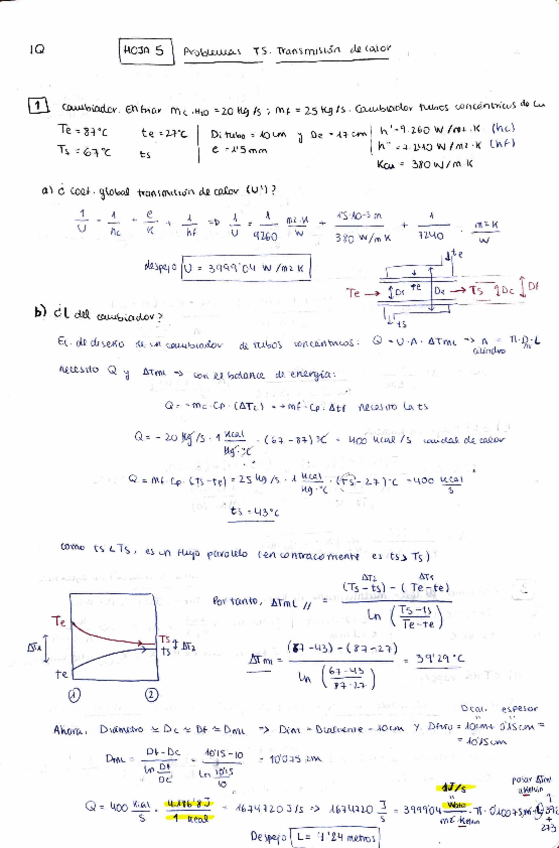 IQ HOJA 5 Problemas T5. Transmisión de calor
1 Cambiador. Entran mc H2O = 20 kg/s ; mf = 25 kg/s. Cambiador tubos concéntricos de Cu
Te = 87°C te = 27°C Di tubo = 10 cm y De = 17 cm h' = 9.260 W/m2·K (hc)
Ts = 67°C ts e = 1'5 mm h'' = 7.240 W/m2·K (hf)
Kcu = 380 W/m·K
a) ¿ coef. global transmisión de calor (U')?
1/U = 1/hc + e/K + 1/hf => 1/U = 1/9260 m2·K/W + 1'5·10-3 m / 380 W/m·K + 1/7240 · m2·K/W
despejo U = 3999'04 W/m2·K
te
Te → Di te De → Ts Dc Df
ts
b) ¿L del cambiador?
Ec. de diseño de un cambiador de tubos concéntricos: Q = U·A·ΔTml → A = π·D·L
m
cilindro
Necesito Q y ΔTml → con el balance de energía:
Q = -mc·Cp·(ΔTc) = +mf·Cp·Δtf necesito la ts
Q = - 20 kg/s · 1 kcal/kg·°C · (67 - 87)°C = 400 kcal/s caudal de calor
Q = mf·Cp·(ts - te) = 25 kg/s · 1 kcal/kg·°C · (ts - 27)°C = 400 kcal/s
ts = 43°C
como ts < Ts, es un flujo paralelo (en contracorriente es ts > Ts)
Por tanto, ΔTml // = (Ts - ts) - (Te - te) / Ln (Ts - ts / Te - te)
ΔT2 ΔT1
Te
Ts
ts
ΔT1 ΔT2
te
1 2
ΔTml = (67 - 43) - (87 - 27) / Ln (67 - 43 / 87 - 27) = 39'29 °C
Dcal. espesor
Ahora, Diámetro ≃ Dc ≃ Df ≃ Dml → = 10 cm y = 10 cm + 0'15 cm =
= 10'15 cm
Dml = Df - Dc / Ln Df/Dc = 10'15 - 10 / Ln 10'15/10 = 10'075 cm
1J/s
Watio
pasar ΔTml a Kelvin
Q = 400 kcal/s · 4.186'8 J / 1 kcal = 1674720 J/s => 1674720 J/s = 3999'04 / m2·Kelvin · π · 0'10075 m · L
+
273
Despejo L = 4'24 metros